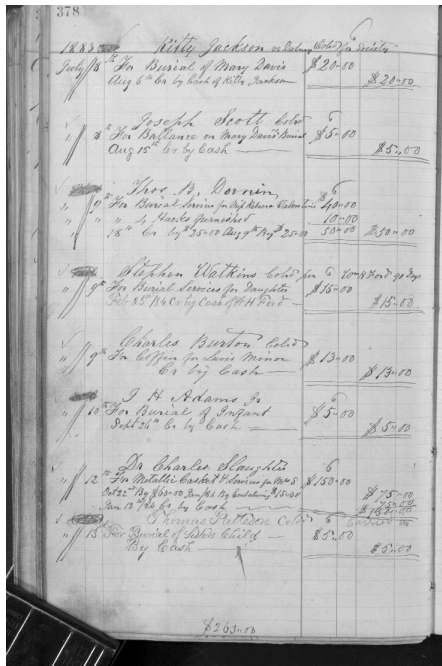 378
1883 Kitty Jackson Cold for Society
July 8th For Burial of Mary Davis $20.00
Aug 6th Cr by Cash of Kitty Jackson $20.00
Joseph Scott Cold 6
" 8th For Ballance on Mary Davis Burial $5.00
Aug 15th Cr by Cash $5.00
Thos. B. Dornin 6
" 9th For Burial Services for Rebecca Valentine $40.00
" " 4 Hacks furnished 10.00
18th Cr by $25.00 Aug 9th By $25.00 50.00 $50.00
Stephen Watkins Cold for 6 90 Days
" 9th For Burial Services for Daughter $15.00
Feb 25th 84 Cr by Cash of H H Ford $15.00
Charles Burton Cold 6
" 9th For Coffin for Lewis Minor $13.00
Cr by Cash $13.00
J H Adams Jr 6
" 10th For Burial of Infant $5.00
Sept 26th Cr by Cash $5.00
Dr Charles Slaughter 6
" 12th For Metallic Casket & Services for Mrs S $150.00
Oct 22nd By $60.00 By $15.00 $75.00
Jan 12th 84 Cr by Cash 75.00
Thomas Cold 6
" 13th For Burial of Sisters Child $5.00
By Cash $5.00
$263.00